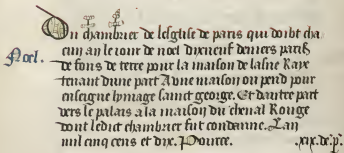 Du chambrier de lesglise de paris qui doibt cha
cun an le iour de noel dixneuf deniers parisis
Noel.
de fons de terre pour la maison de lasne Raye
tenant dune part A une maison ou pend pour
enseigne lymage sainct george. Et dautre part
vers le palais a la maison du cheual Rouge
dont ledict chambrier fut condanne. Lan
mil cinq cens et dix. Pource. .xix.d.p.